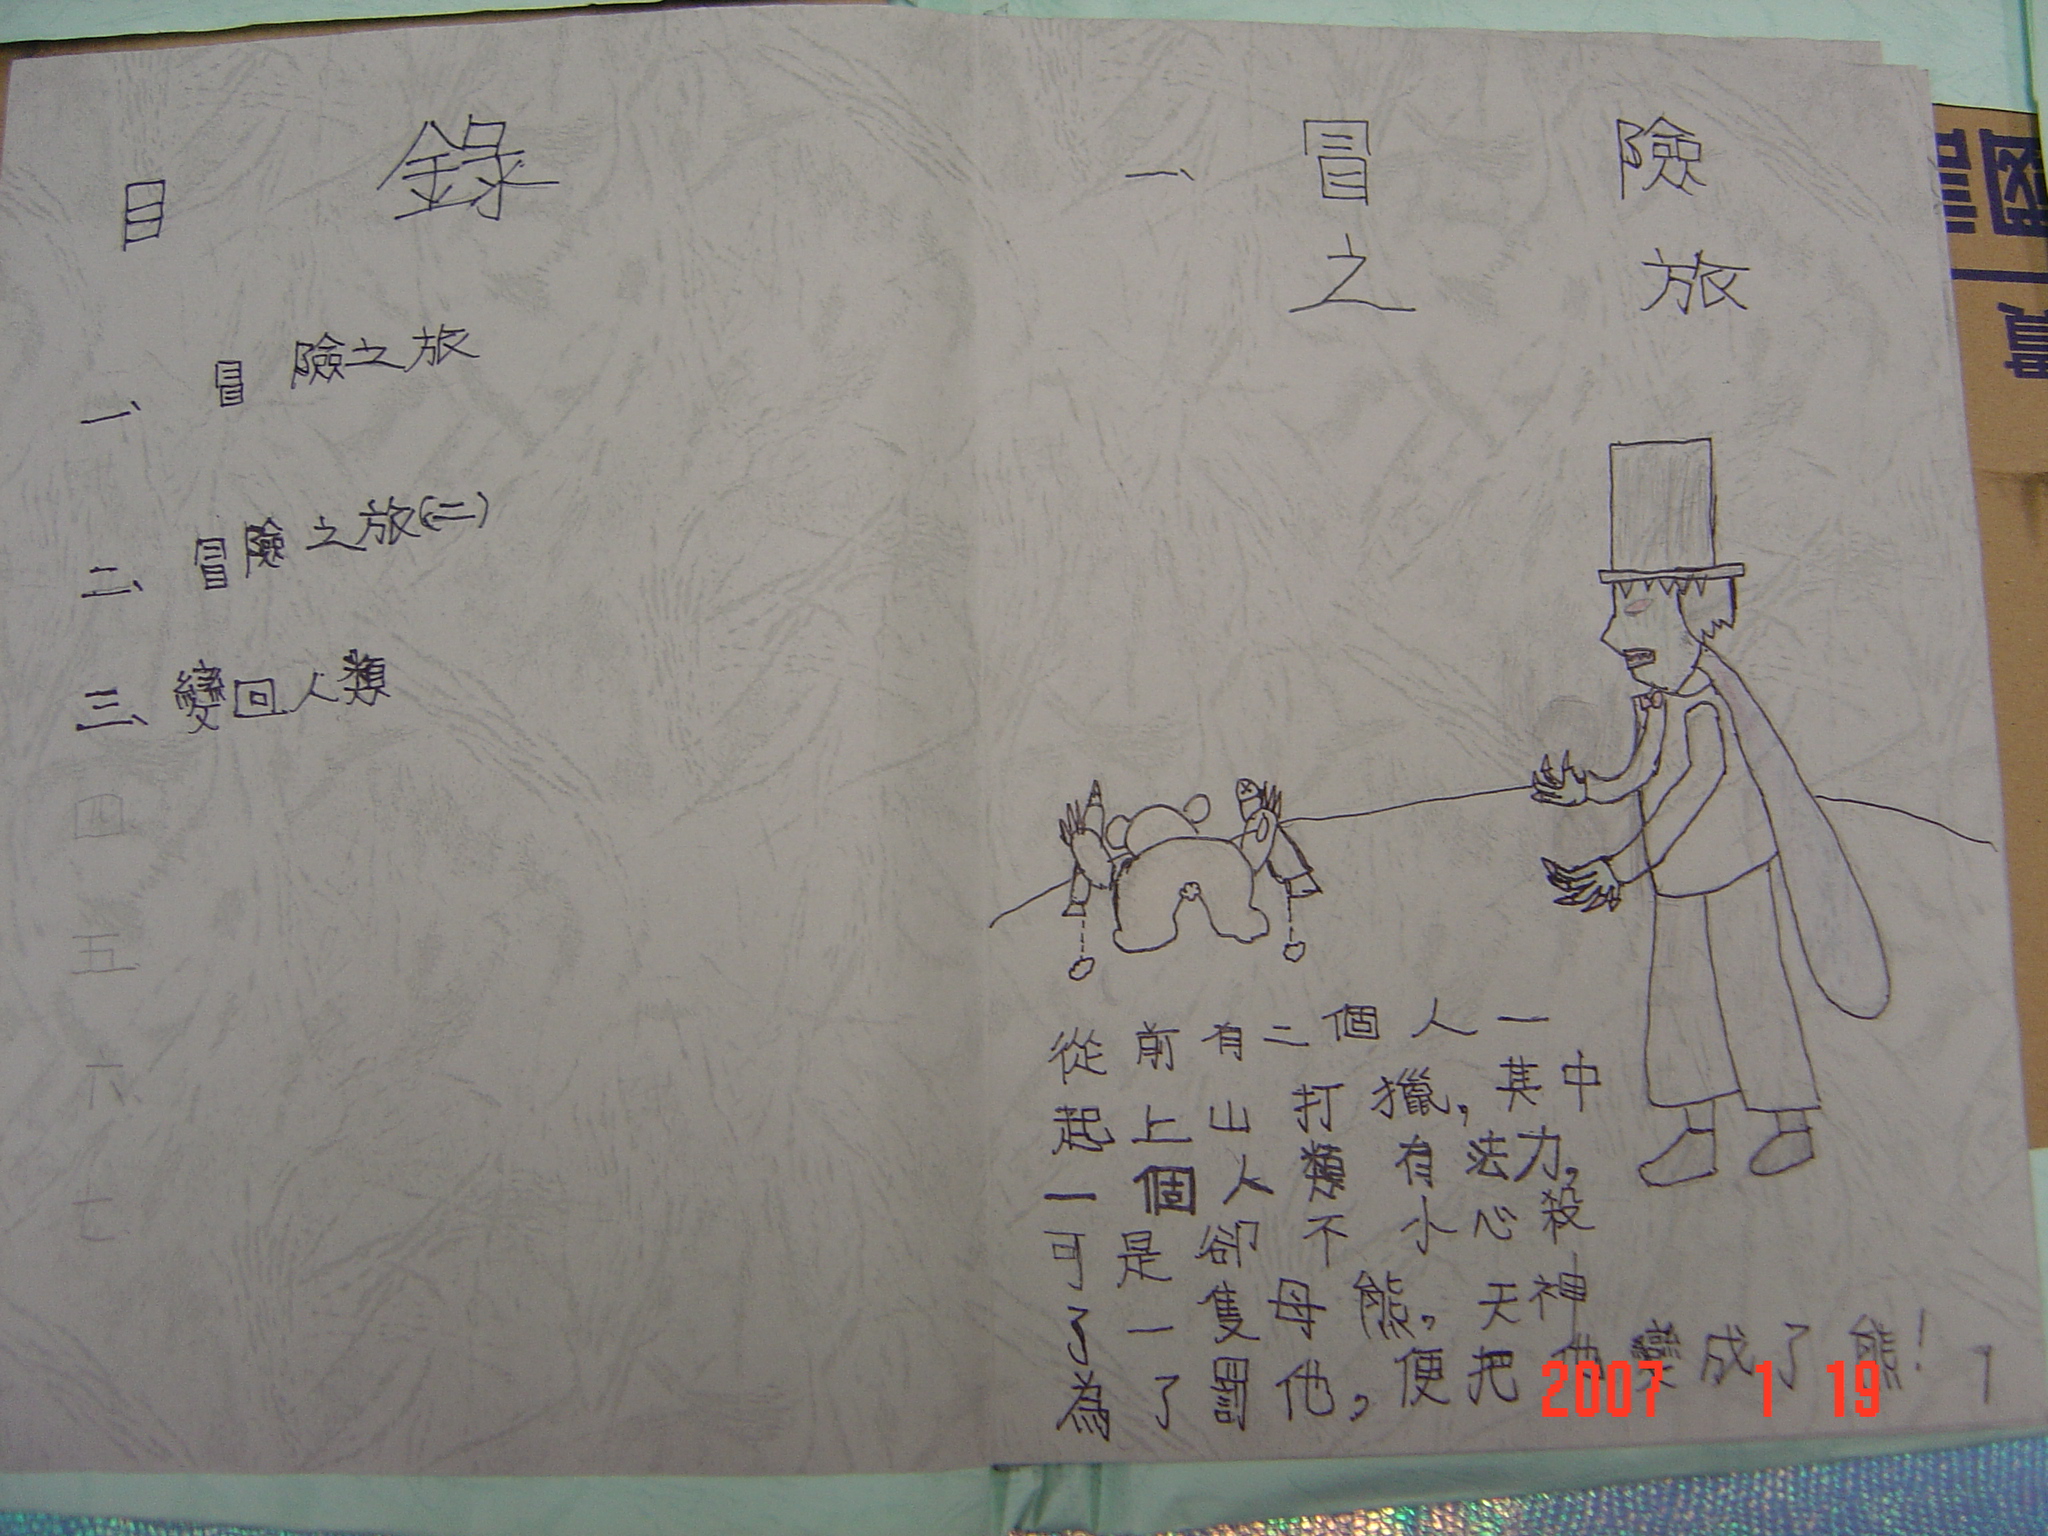 目錄
一、冒險之旅
二、冒險之旅(二)
三、變回人類
四
五
六
七
一、冒險
之旅
從前有二個人一
起上山打獵,其中
一個人類有法力,
可是卻不小心殺
了一隻母熊。天神
為了罰他,便把他變成了熊!
1
2007 1 19